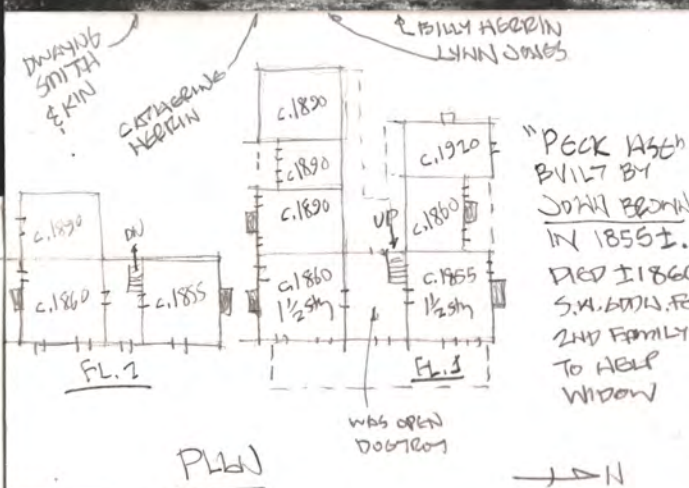 DWAYNE
SMITH
& KIN
CATHERINE
HERRIN
BILLY HERRIN
LYNN JONES
c.1890
c.1890
c.1890
c.1860
1½ Sty
c.1920
c.1860
UP
c.1855
1½ Sty
c.1890
DN
c.1860
c.1855
FL.2
FL.1
WAS OPEN
DOGTROT
PLAN
N
BUILT BY
JOHN BROWN
IN 1855±.
DIED ±1860
2ND FAMILY
TO HELP
WIDOW